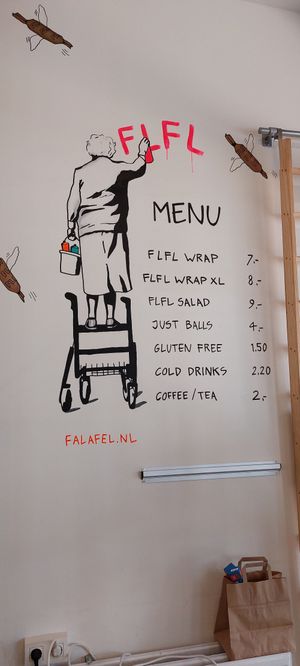 FLFL
MENU
FLFL WRAP 7.-
FLFL WRAP XL 8.-
FLFL SALAD 9.-
JUST BALLS 4.-
GLUTEN FREE 1.50
COLD DRINKS 2.20
COFFEE/TEA 2.-
FALAFEL.NL